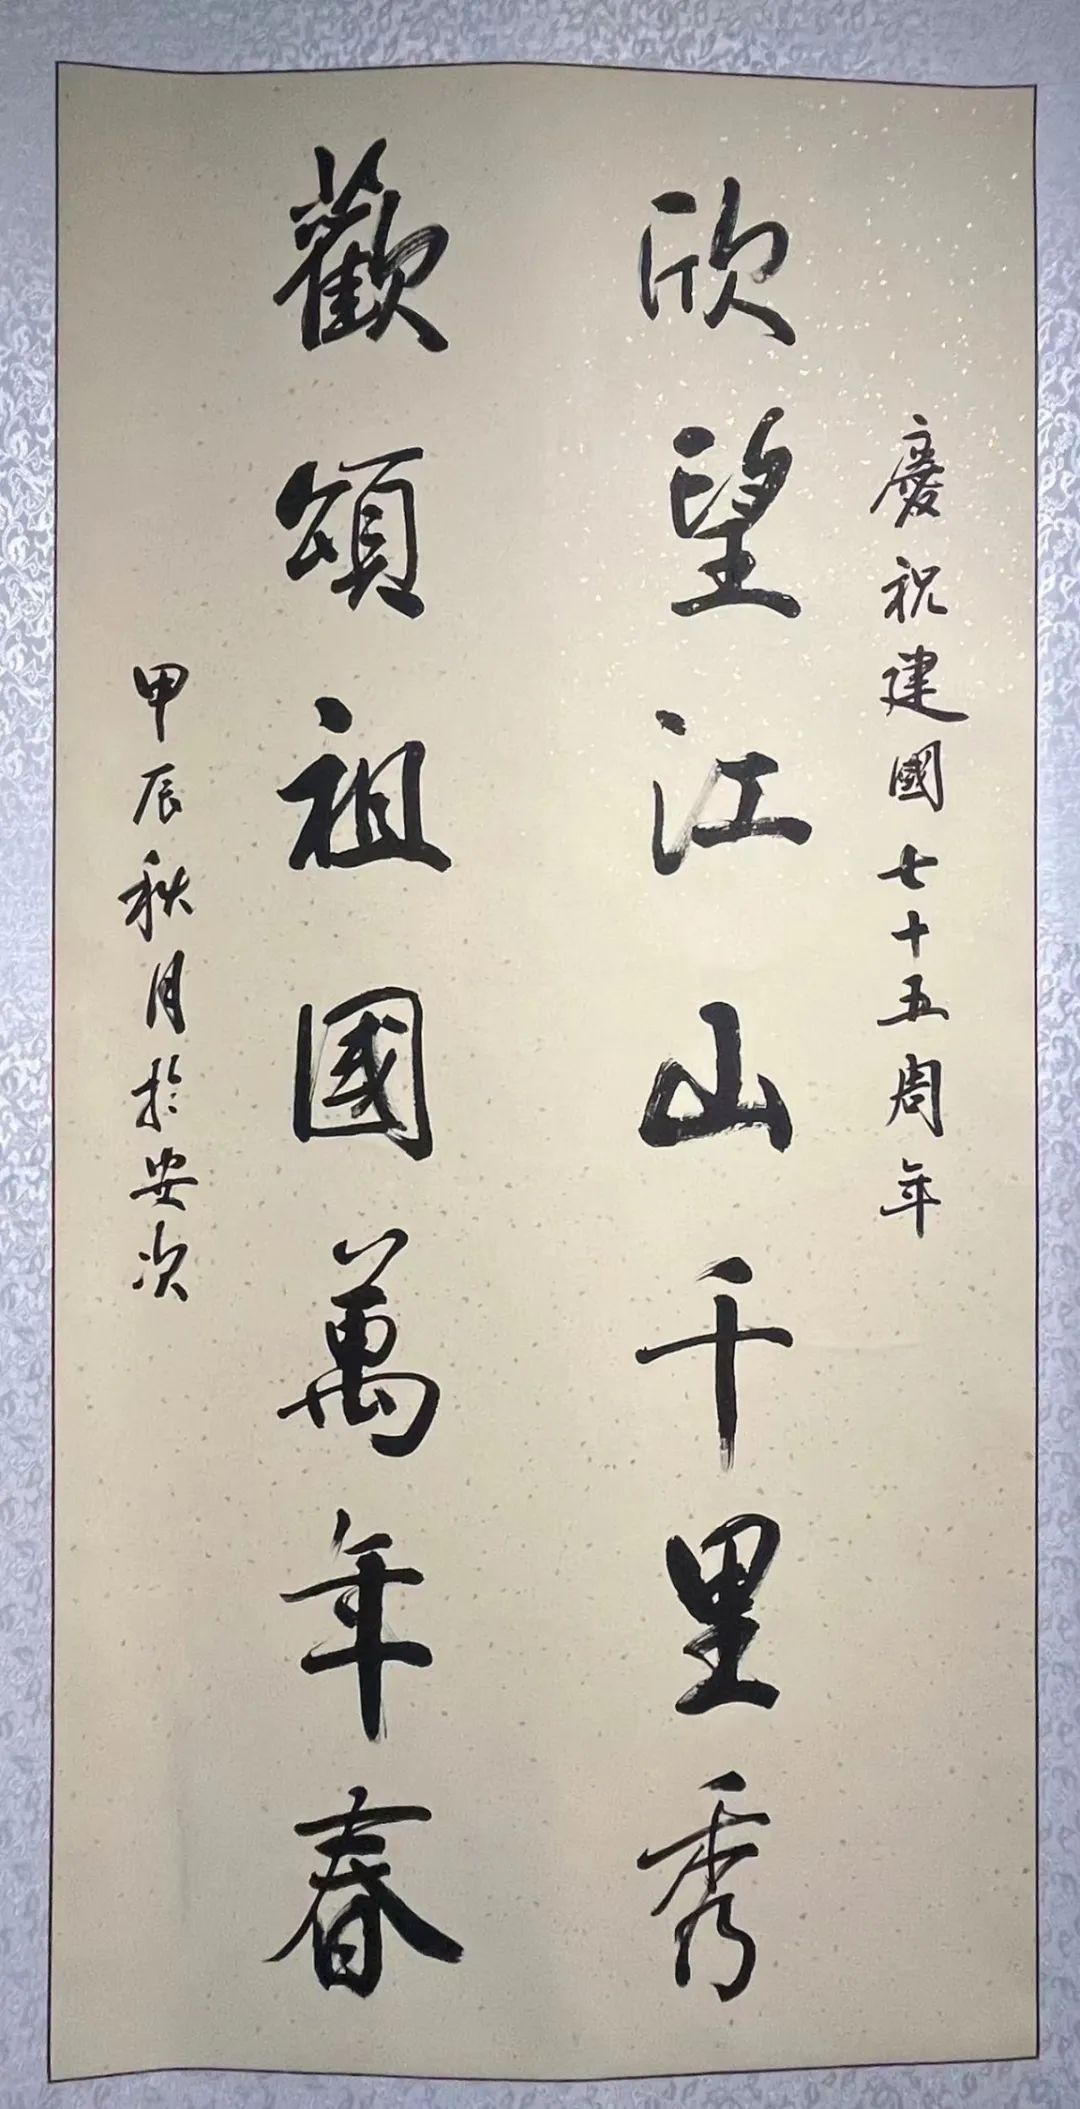 慶祝建國七十五周年
欣望江山千里秀
歡頌祖國萬年春
甲辰秋月於安次